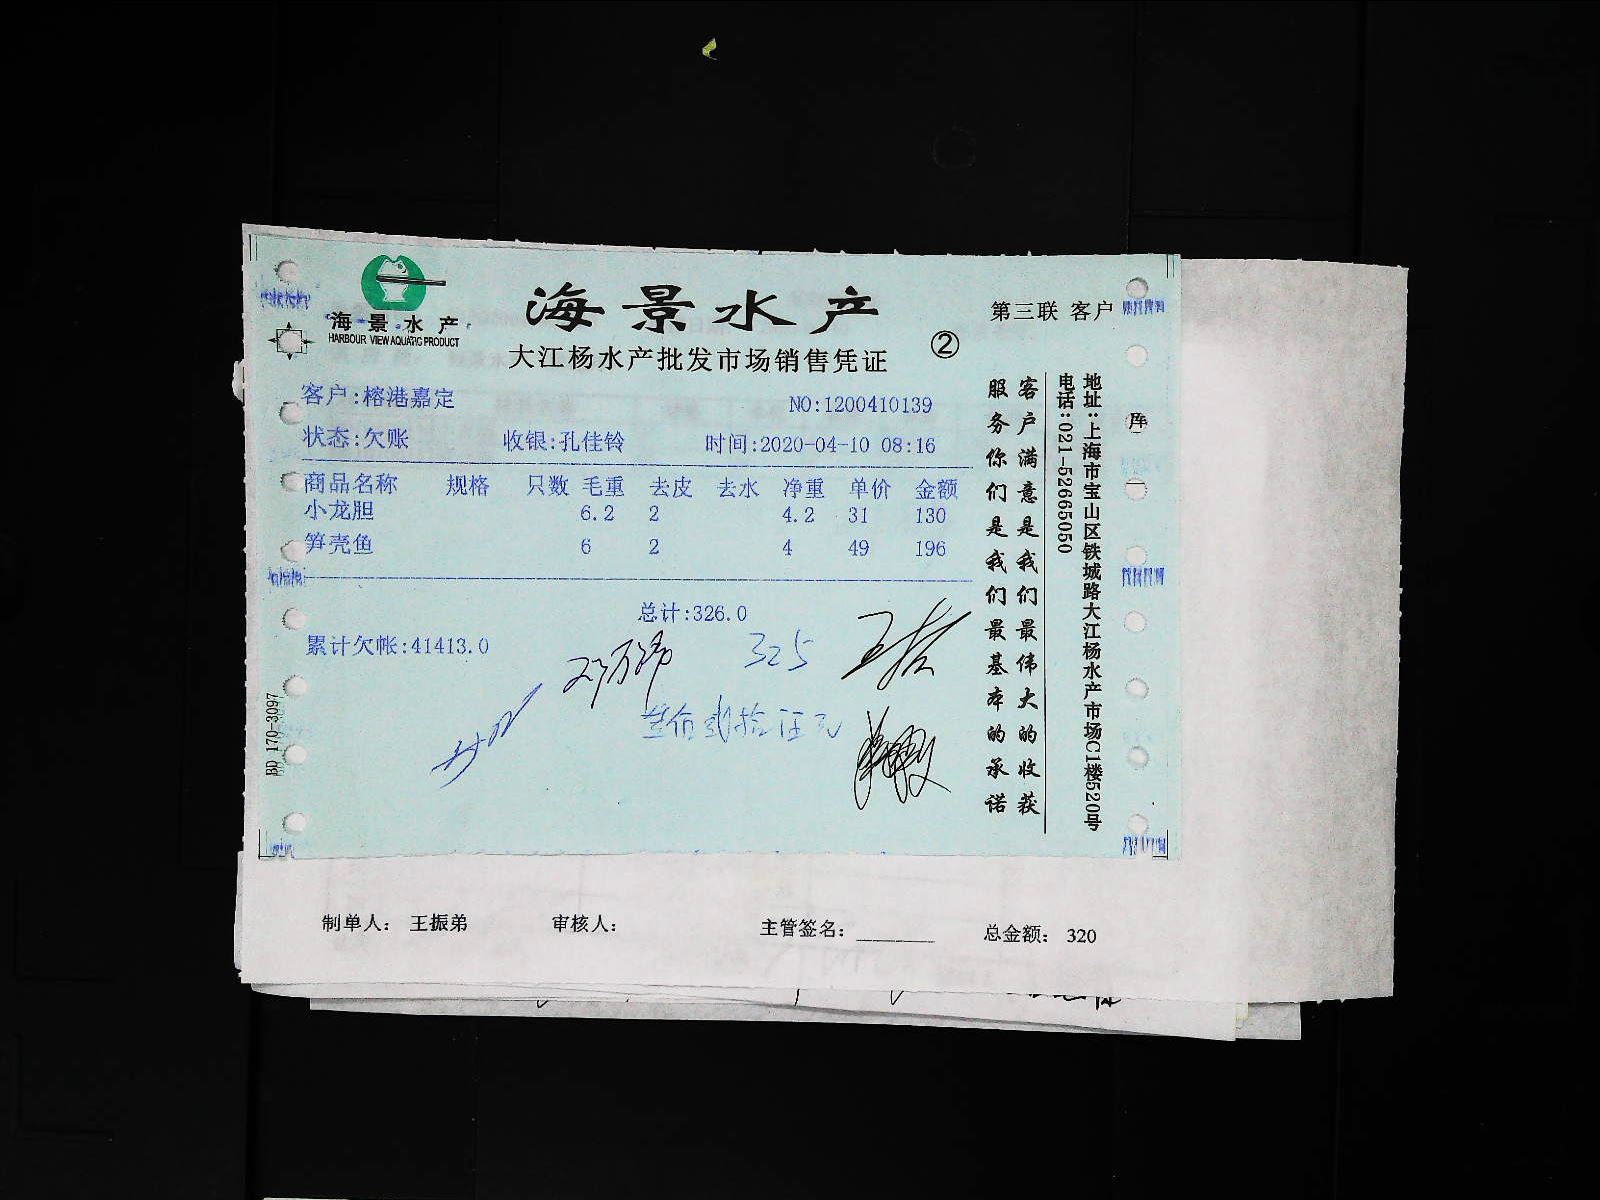 海景水产
HARBOUR VIEW AQUATIC PRODUCT
海景水产
大江杨水产批发市场销售凭证
②
第三联 客户
客户:榕港嘉定
NO:1200410139
状态:欠账 收银:孔佳铃 时间:2020-04-10 08:16
商品名称 规格 只数 毛重 去皮 去水 净重 单价 金额
小龙胆 6.2 2 4.2 31 130
笋壳鱼 6 2 4 49 196
总计:326.0
累计欠帐:41413.0
325
叁佰贰拾伍元
BD 170-3097
客户满意是我们最伟大的收获
服务你们是我们最基本的承诺
地址:上海市宝山区铁城路大江杨水产市场C1楼520号
电话:021-52665050
库
制单人: 王振弟 审核人: 主管签名: 总金额: 320